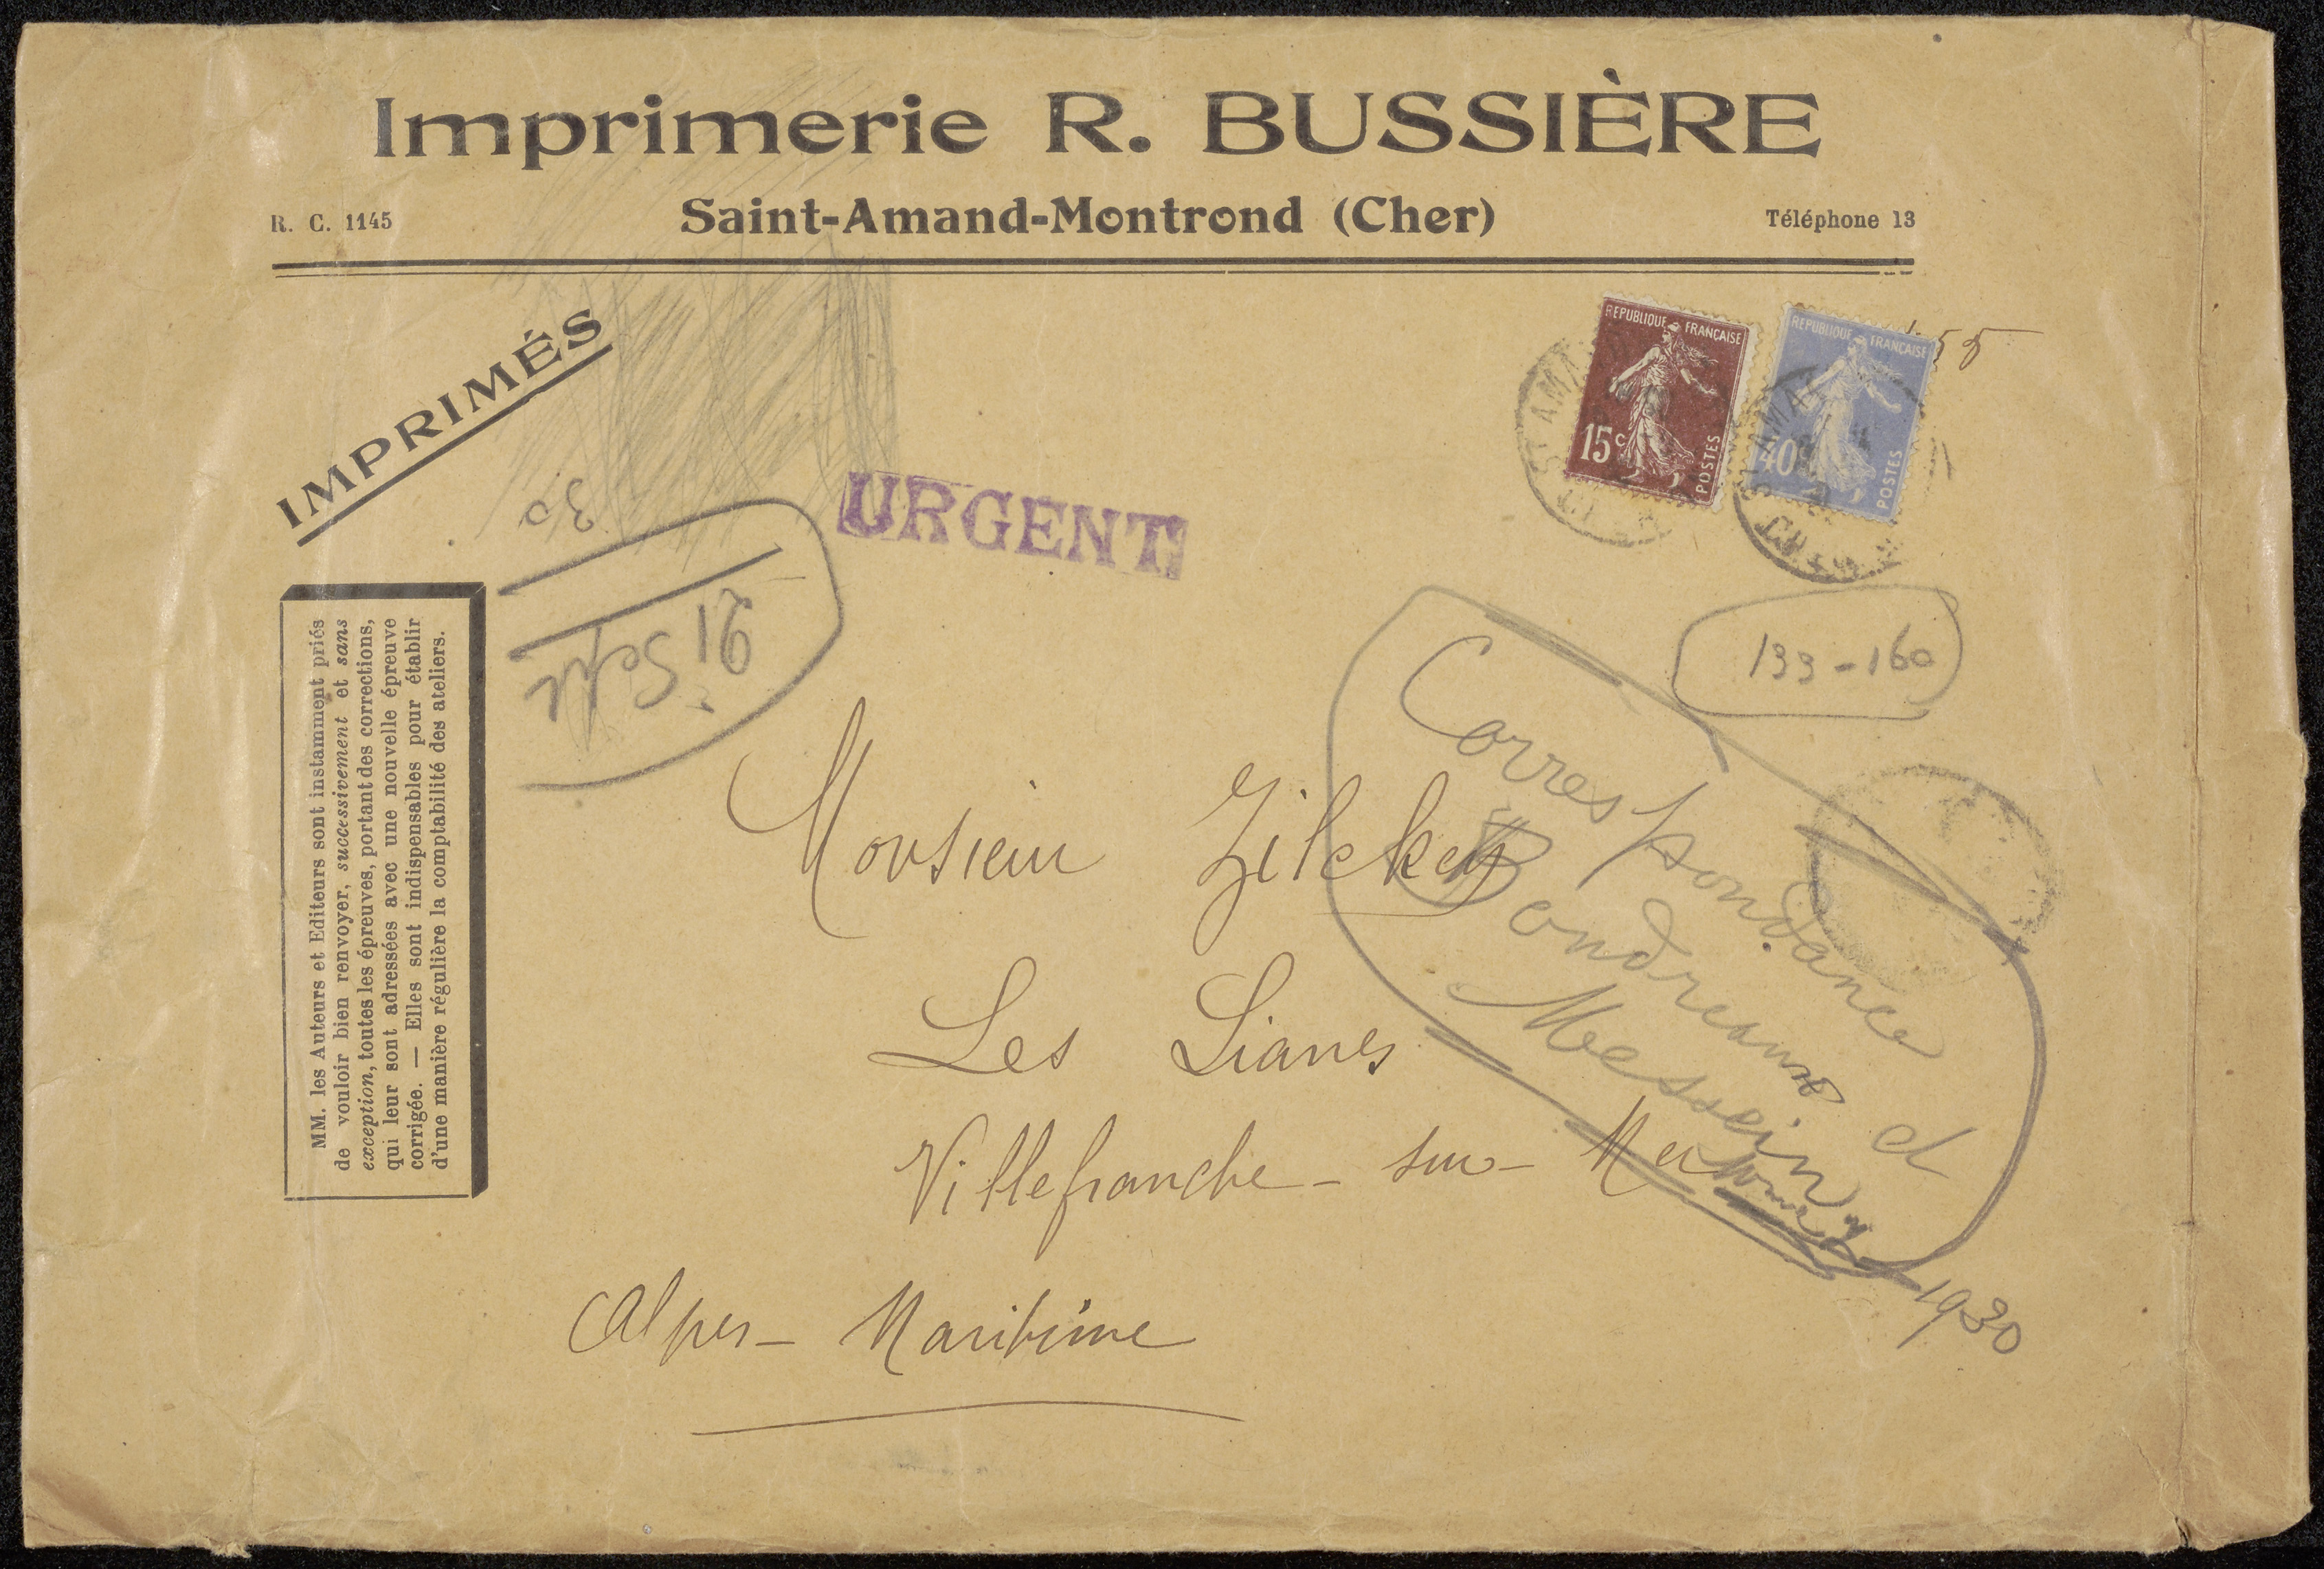 Imprimerie R. BUSSIÈRE
R. C. 1145
Saint-Amand-Montrond (Cher)
Téléphone 13
IMPRIMÉS
REPUBLIQUE FRANÇAISE
15c
POSTES
REPUBLIQUE FRANÇAISE
40c
POSTES
ST AMA
ST AMA
55
URGENT
30
21 Sept
133-160
MM. les Auteurs et Editeurs sont instamment priés
de vouloir bien renvoyer, successivement et sans
exception, toutes les épreuves, portant des corrections,
qui leur sont adressées avec une nouvelle épreuve
corrigée. — Elles sont indispensables pour établir
d'une manière régulière la comptabilité des ateliers.
Correspondance
et
Messein
1930
Monsieur Zilcken
Les Lianes
Villefranche-sur-Mer
Alpes-Maritime